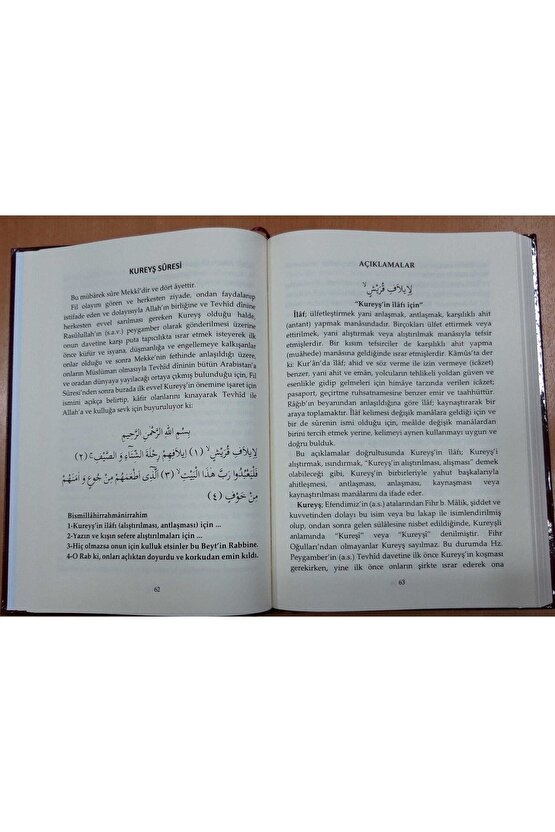 KUREYŞ SÛRESİ
Bu mübârek sûre Mekkî'dir ve dört âyettir.
Fil olayını gören ve herkesten ziyade, ondan faydalanıp
istifade eden ve dolayısıyla Allah'ın birliğine ve Tevhîd dînine
herkesten evvel sarılması gereken Kureyş olduğu halde,
Rasûlullah'ın (s.a.v.) peygamber olarak gönderilmesi üzerine
onun davetine karşı puta tapıcılıkta ısrar etmek isteyerek ilk
önce küfür ve isyana, düşmanlığa ve engellemeye kalkışanlar
onlar olduğu ve sonra Mekke'nin fethinde anlaşıldığı üzere,
onların Müslüman olmasıyla Tevhîd dîninin bütün Arabistan'a
ve oradan dünyaya yayılacağı ortaya çıkmış bulunduğu için, Fil
Sûresi'nden sonra burada ilk evvel Kureyş'in önemine işaret için
ismini açıkça belirtip, kâfir olanlarını kınayarak Tevhîd ile
Allah'a ve kulluğa sevk için buyuruluyor ki:
بِسْمِ اللّٰهِ الرَّحْمٰنِ الرَّحِيمِ
لِاِيلَافِ قُرَيْشٍۙ (١) اِيلَافِهِمْ رِحْلَةَ الشِّتَٓاءِ وَ الصَّيْفِۚ (٢)
فَلْيَعْبُدُوا رَبَّ هٰذَا الْبَيْتِۙ (٣) اَلَّذِٓى اَطْعَمَهُمْ مِنْ جُوعٍ وَ اٰمَنَهُمْ
مِنْ خَوْفٍ (٤)
Bismillâhirrahmânirrahim
1-Kureyş'in ilâfı (alıştırılması, antlaşması) için ...
2-Yazın ve kışın sefere alıştırılmaları için ...
3-Hiç olmazsa onun için kulluk etsinler bu Beyt'in Rabbine.
4-O Rab ki, onları açlıktan doyurdu ve korkudan emin kıldı.
62
AÇIKLAMALAR
لِاِيلَافِ قُرَيْشٍۙ
"Kureyş'in ilâfı için"
Îlâf; ülfetleştirmek yani anlaşmak, antlaşmak, karşılıklı ahit
(antant) yapmak manâsınadır. Birçokları ülfet ettirmek veya
ettirilmek, yani alıştırmak veya alıştırılmak manâsıyla tefsir
etmişlerdir. Bir kısım tefsirciler de karşılıklı ahit yapma
(muâhede) manâsına geldiğinde ısrar etmişlerdir. Kâmûs'ta der
ki: Kur'ân'da îlâf; ahid ve söz verme ile izin vermeye (icâzet)
benzer, yani ahit ve emân, yolcuların tehlikeli yoldan güven ve
esenlikle gidip gelmeleri için himâye tarzında verilen (icâzet;
pasaport, geçirtme ruhsatnamesine benzer emir ve taahhüttür.
Râğıb'ın beyanından anlaşıldığına göre îlâf; kaynaştırarak bir
araya toplamaktır. Îlaf kelimesi değişik manâlara geldiği için ve
bir de sûrenin ismi olduğu için, meâlde değişik manâlardan
birini tercih etmek yerine, kelimeyi aynen kullanmayı uygun ve
doğru bulduk.
Bu açıklamalar doğrultusunda Kureyş'in îlâfı; Kureyş'i
alıştırmak, ısındırmak, "Kureyş'in alıştırılması, alışması" demek
olabileceği gibi, Kureyş'in birbirleriyle yahut başkalarıyla
ahitleşmesi, antlaşması, anlaşması, kaynaşması veya
kaynaştırılması manâlarını da ifade eder.
Kureyş; Efendimiz'in (a.s.) atalarından Fihr b. Mâlik, şiddet ve
kuvvetinden dolayı bu isim veya bu lakap ile isimlendirilmiş
olup, ondan sonra gelen sülâlesine nisbet edildiğinde, Kureyşli
anlamında "Kureşî" veya "Kureyşî" denilmiştir. Fihr
Oğulları'ndan olmayanlar Kureyş sayılmaz. Bu durumda Hz.
Peygamber'in (a.s.) Tevhîd davetine ilk önce Kureyş'in koşması
gerekirken, yine ilk önce onların şirkte ısrar ederek ona
63